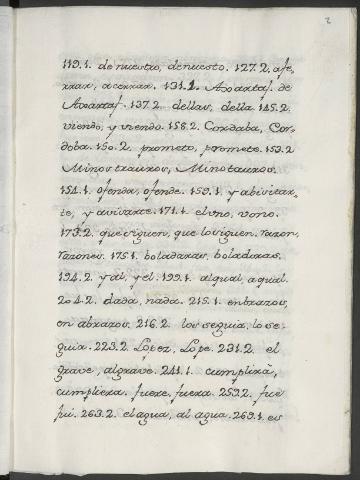 2
119.1. de nuestro, denuesto. 127.2. afe,
rrar, acerrar. 131.2. Axartaf. de
Axartaf. 137.2. dellas, della 145.2.
viendo, y viendo. 158.2. Cordaba, Cor-
doba. 150.2. prometo, promete. 153.2
Minos traauros, Minotauros.
154.1. ofenda, ofende. 159.1. y abivitar-
te, y avivarte. 171.1. el vno, vono.
173.2. que siguen, que lo siguen. razon,
razones. 175.1. boladaras, boladuras.
194.2. y al, y el. 199.1. al qual, a qual.
204.2. dada, nada. 215.1. en brazos,
en abrazos. 216.2. los seguia, lo se-
guia. 223.2. Lopez, Lope. 231.2. el
grave, al grave. 241.1. cumplirã,
cumpliera. fuere, fuera. 259.2. fue
fui. 263.2. el agua, al agua. 269.1. es